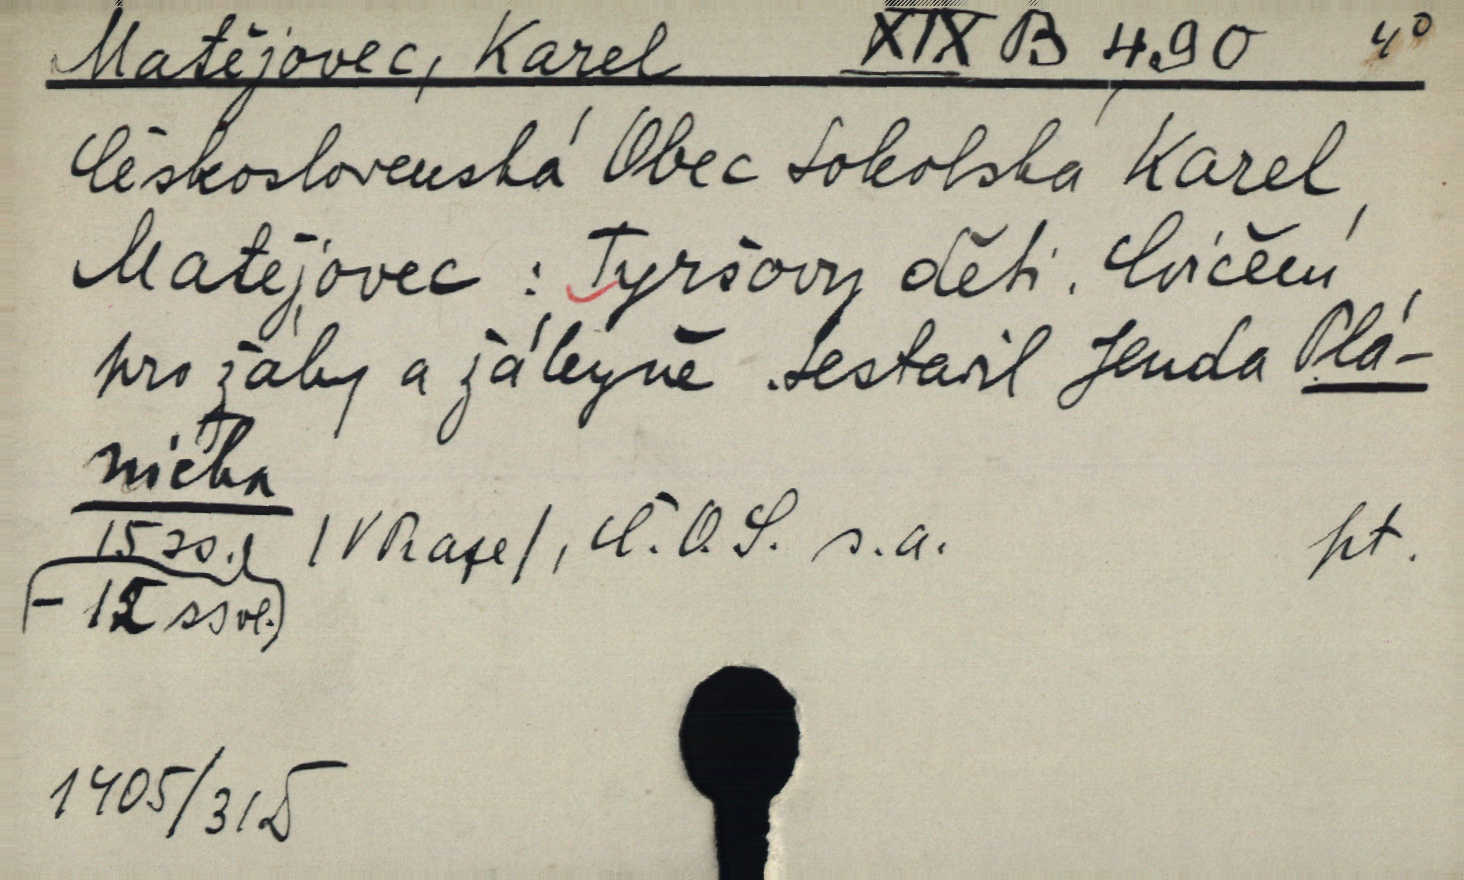 Matějovec, Karel XIX B 490 4°
Československá Obec Sokolská Karel
Matějovec : Tyršovy děti. Cvičení
pro žáky a žákyně. Sestavil Jenda Plá-
nička
15 ss. /V Praze/, Č.O.S. s.a. pt.
(- 12 ss vl.)
1405/31 D